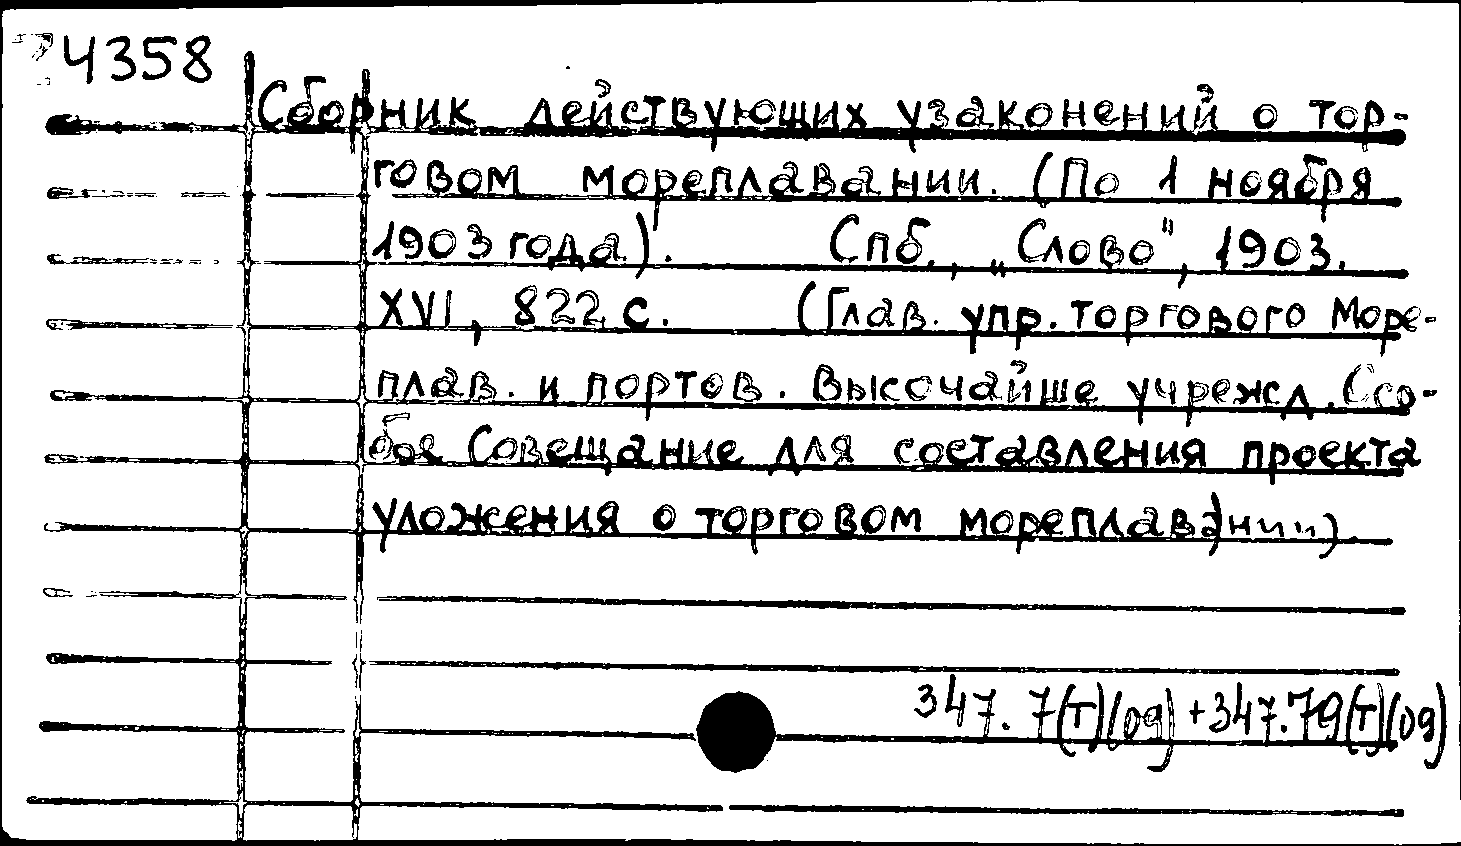 4358
Сборник действующих узаконений о тор-
говом мореплавании. (По 1 ноября
1903 года). Спб., „Слово", 1903.
XVI, 822 с. (Глав. упр. торгового море-
плав. и портов. Высочайше учрежд. Осо-
бое Совещание для составления проекта
уложения о торговом мореплавании)
347.7(Т)(09)+347.79(Т)(09)